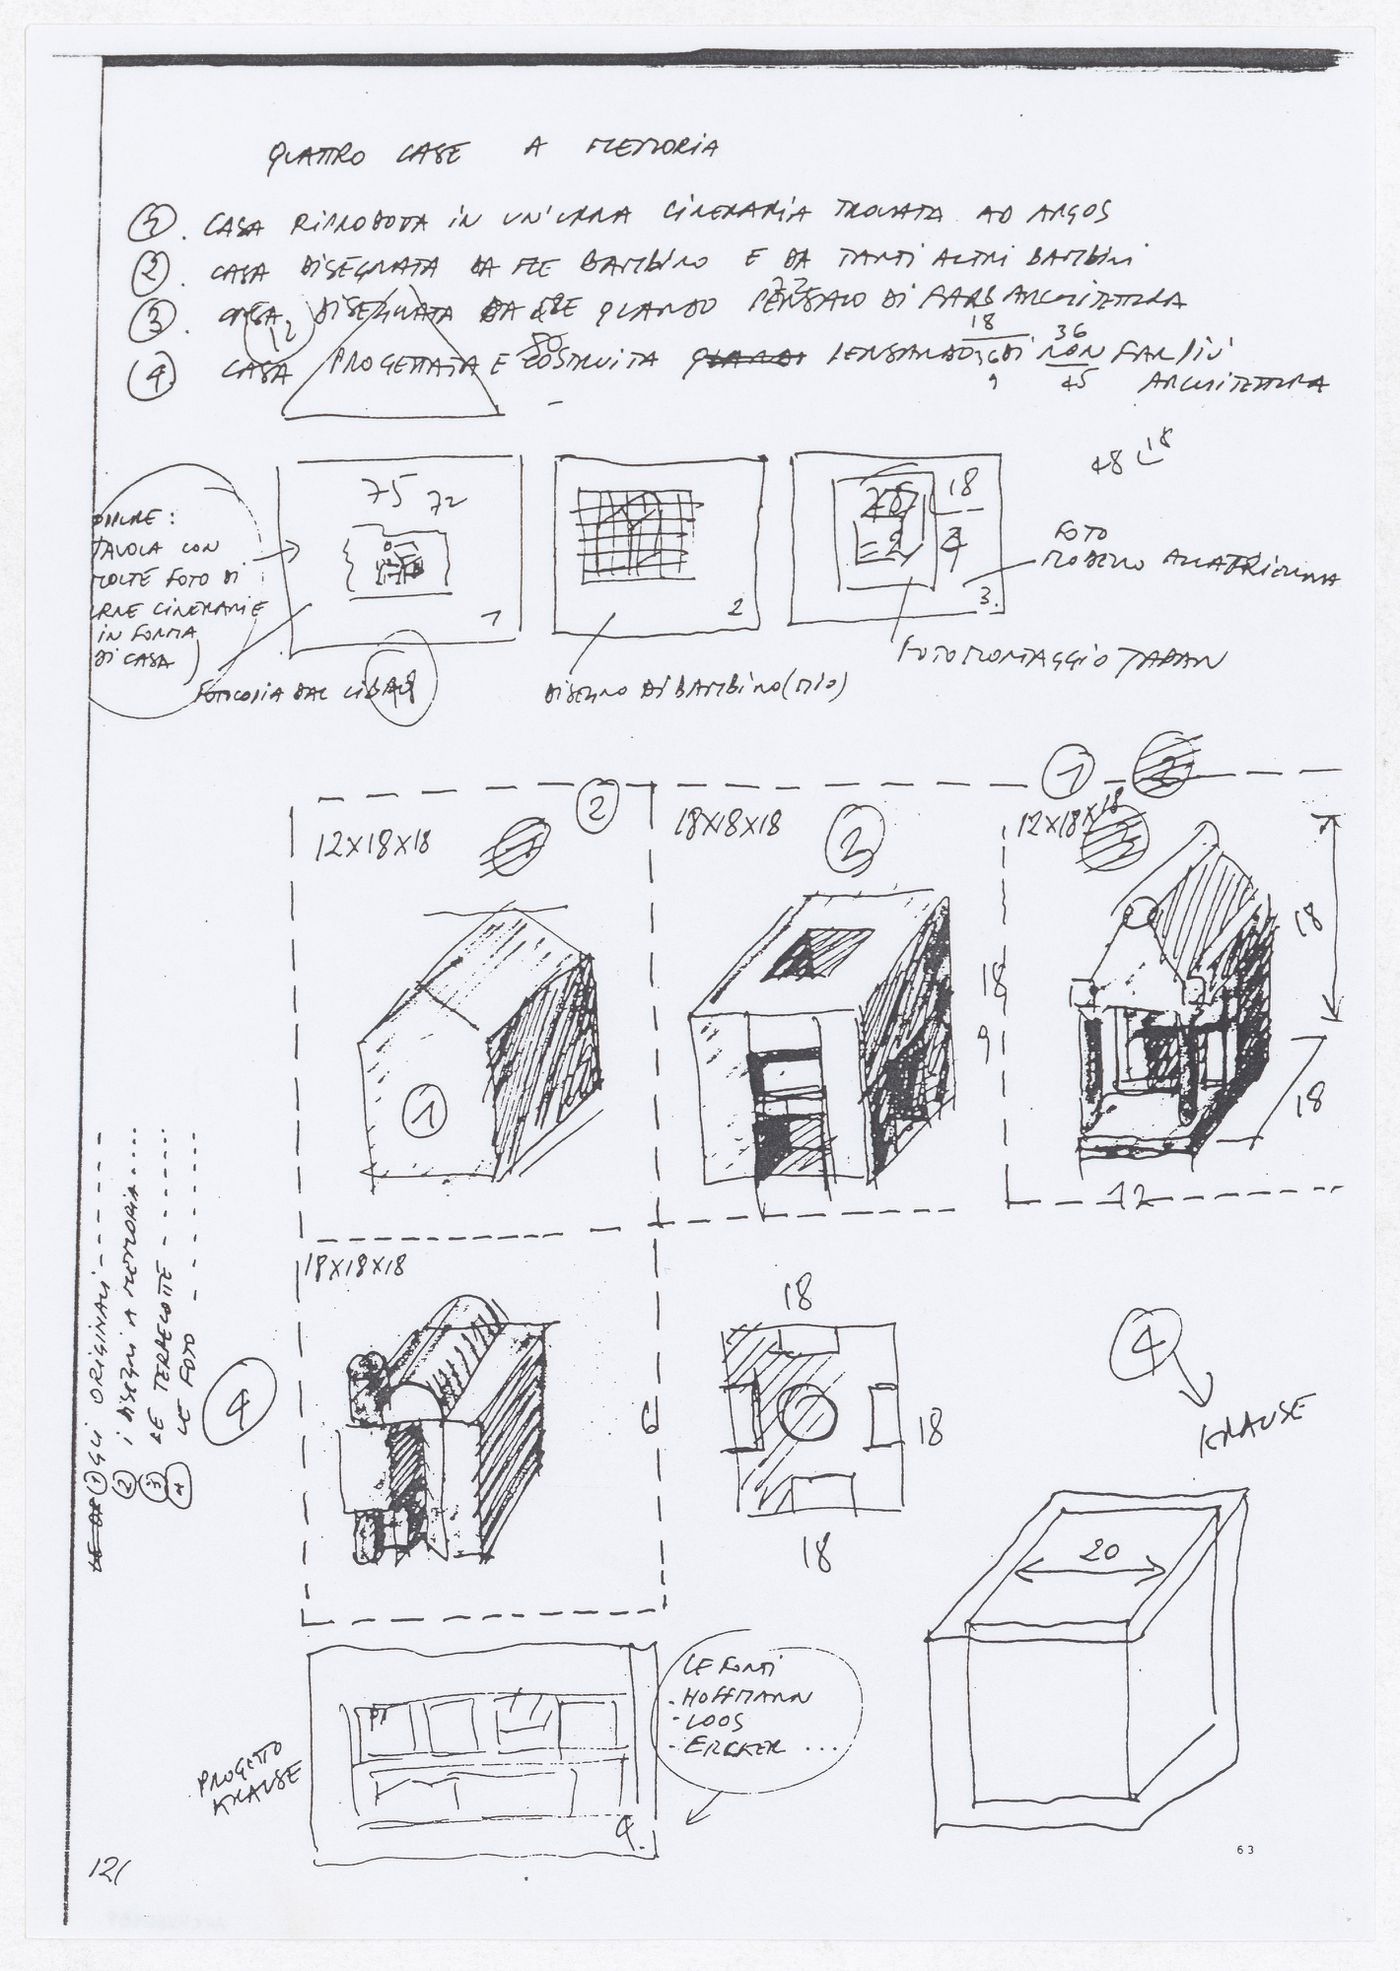 QUATTRO CASE A MEMORIA
1. CASA RIPRODOTTA IN UN'URNA CINERARIA TROVATA AD ARGOS
2. CASA DISEGNATA DA ME BAMBINO E DA TANTI ALTRI BAMBINI
3. CASA DISEGNATA DA ME QUANDO PENSAVO DI FARE ARCHITETTURA
4. CASA PROGETTATA E COSTRUITA PENSANDO DI NON FAR PIÙ
ARCHITETTURA
12
80
72
18
36
9
45
48
18
OPPURE:
TAVOLA CON
MOLTE FOTO DI
URNE CINERARIE
IN FORMA
DI CASA
75 72
1
2
18
3.
FOTO
MODELLO ALLA TRIENNALE
FOTOCOPIA DAL LIBRO
48
DISEGNO DI BAMBINO (MIO)
FOTOMONTAGGIO JAPAN
2
12X18X18
1
18X18X18
3
1
12X18X18
18
9
18
18
12
18X18X18
4
6
18
18
18
4
KRAUSE
20
1 GLI ORIGINALI
2 I DISEGNI A MEMORIA
3 LE TERRECOTTE
4 LE FOTO
PROGETTO
KRAUSE
4.
LE FONTI
- HOFFMANN
- LOOS
- ERCKER ...
63